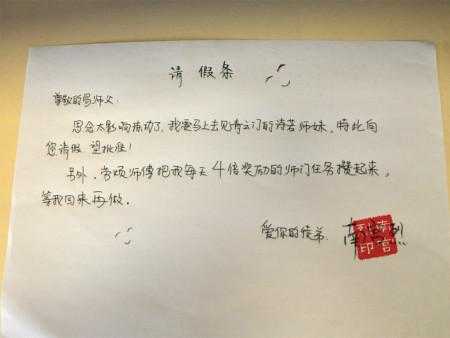 请假条
尊敬的易师父:
思念太影响练功了,我要马上去见青云门的诗若师妹,特此向
您请假,望批准!
另外,劳烦师傅把我每天4倍奖励的师门任务攒起来,
等我回来再做。
爱你的徒弟: